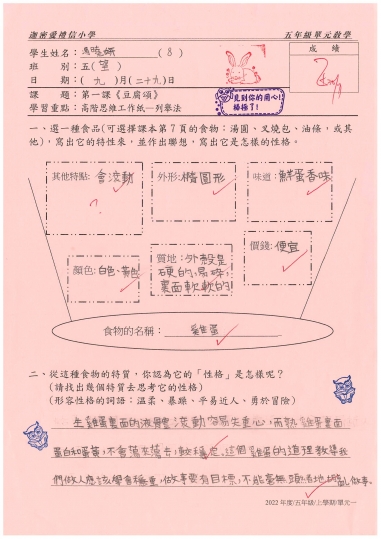 迦密愛禮信小學 五年級單元教學
學生姓名： (8)
成績
班 別：五(望)
日 期：(九)月(二十九)日
見到你的用心！
棒極了！
課 題：第一課《豆腐頌》
學習重點：高階思維工作紙—列舉法
一、選一種食品(可選擇課本第7頁的食物：湯圓、叉燒包、油條，或其
他)，寫出它的特性來，並作出聯想，寫出它是怎樣的性格。
其他特點：會流動
?
外形：橢圓形
味道：鮮蛋香味
顏色：白色、黃色
質地：外殼是
硬的、易碎，
裏面軟軟的
價錢：便宜
食物的名稱：雞蛋
二、從這種食物的特質，你認為它的「性格」是怎樣呢？
(請找出幾個特質去思考它的性格)
(形容性格的詞語：溫柔、暴躁、平易近人、勇於冒險)
生雞蛋裏面的液體流動容易失重心，而熟雞蛋裏面
蛋白和蛋黃，不會蕩來蕩去，較穩定，這個雞蛋的道理教導我
們做人應該學會穩重，做事要有目標，不能毫無頭緒地亂做事。
2022年度/五年級/上學期/單元一